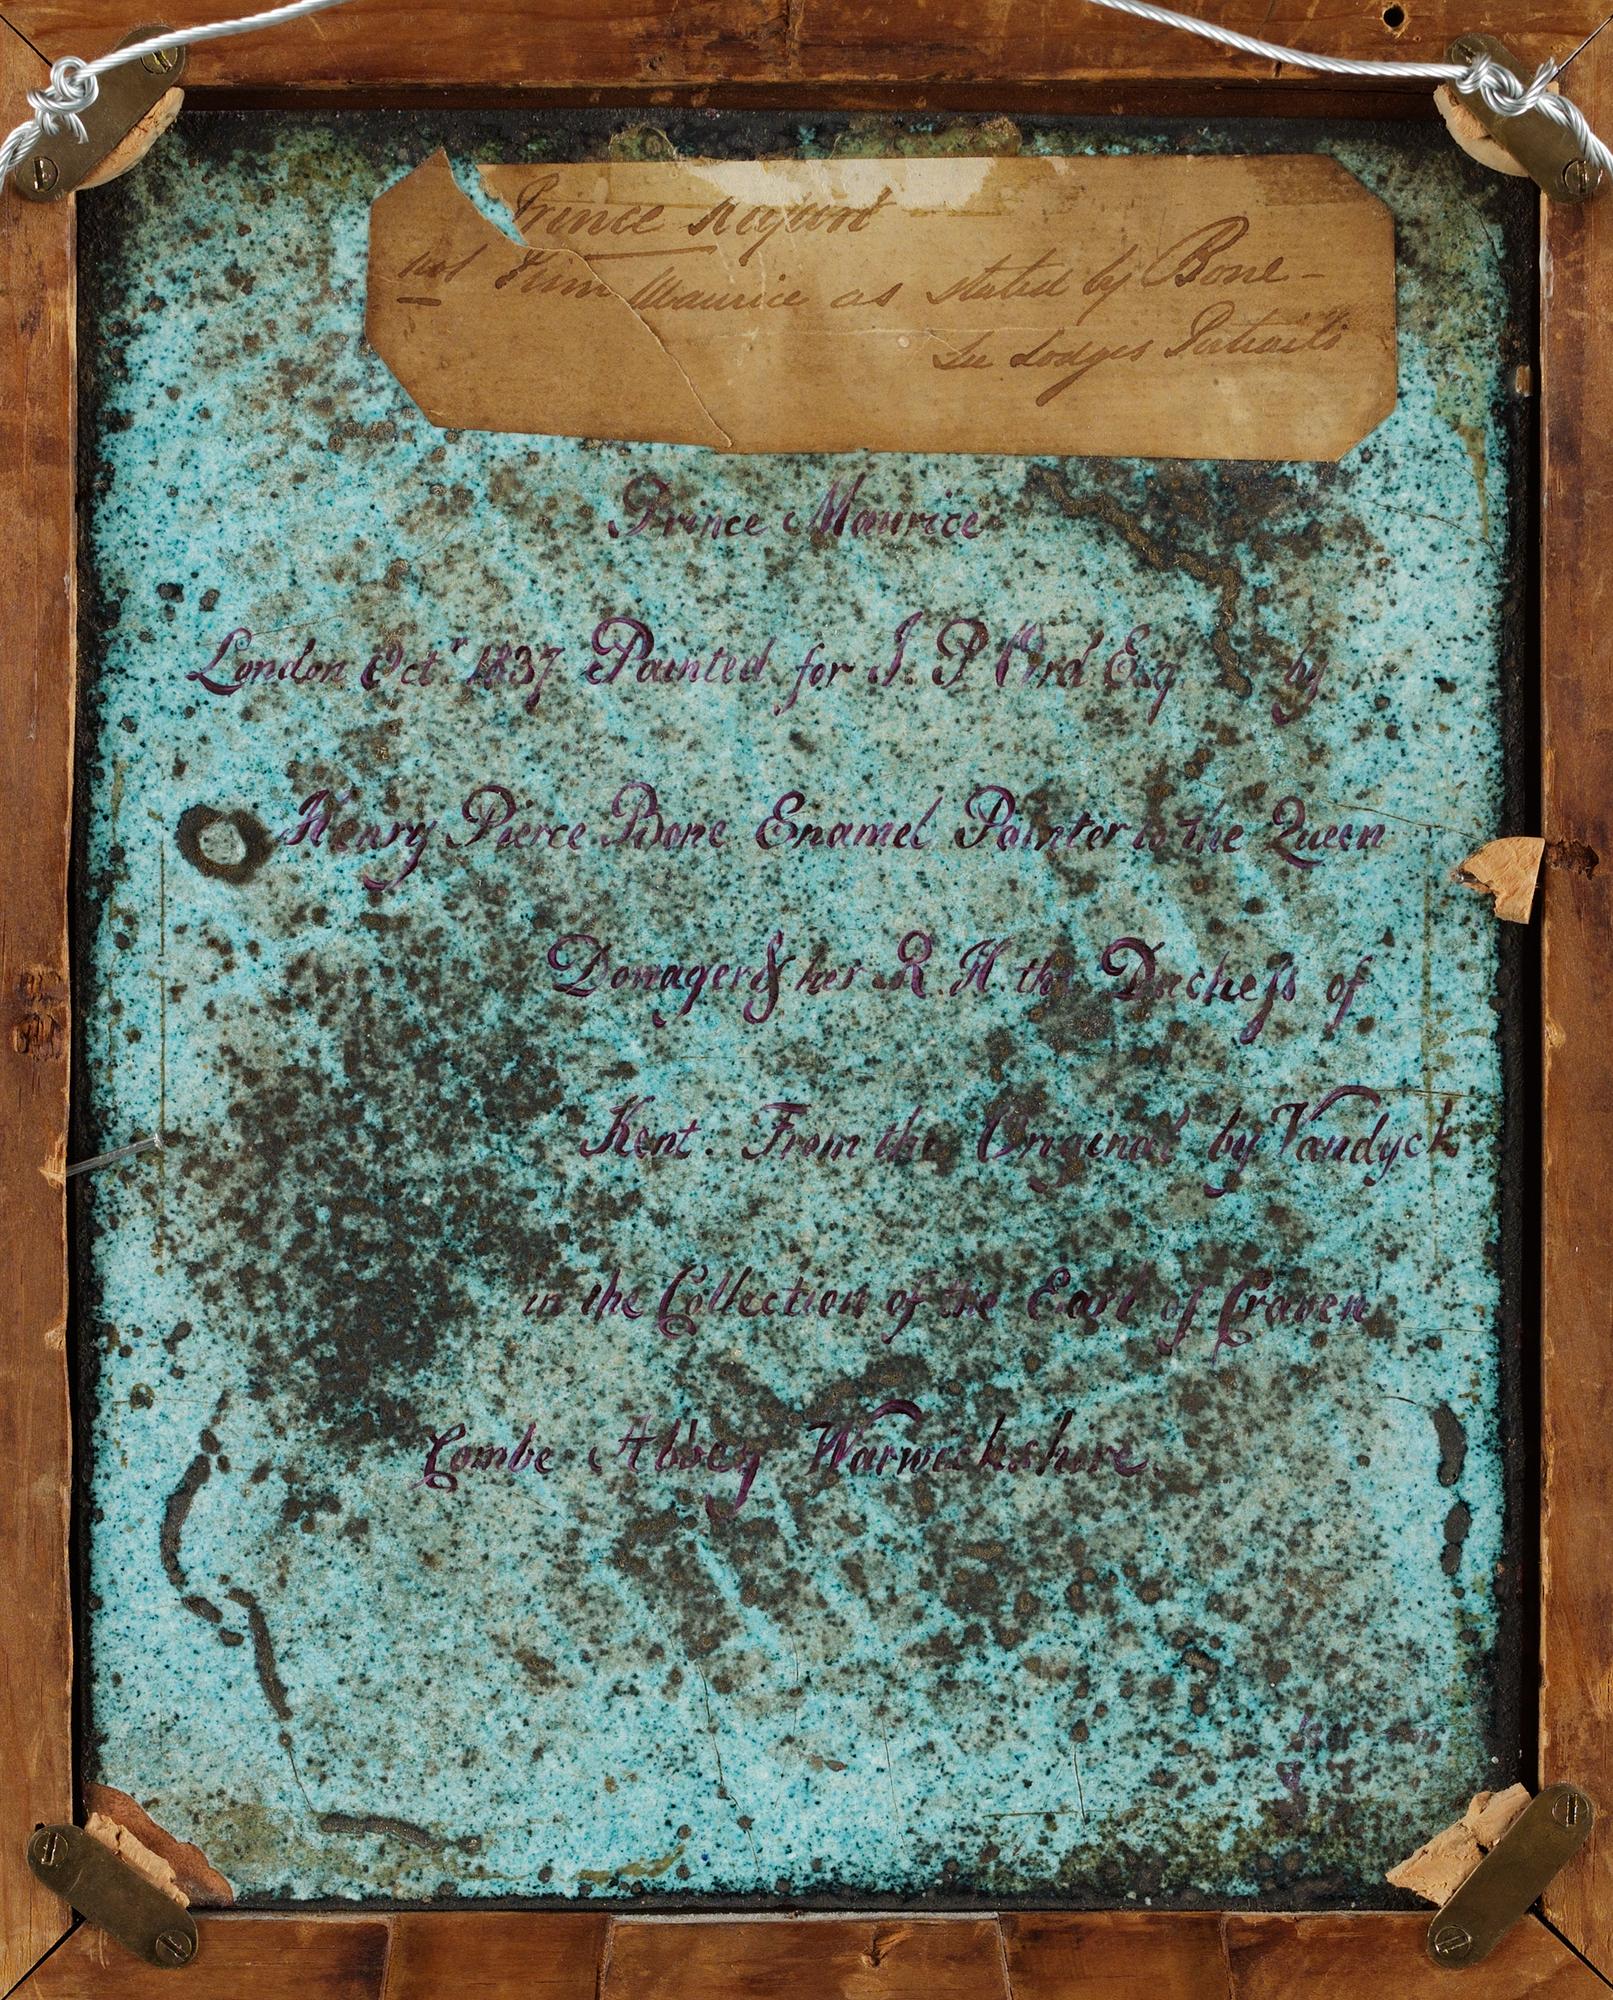 Prince Rupert
not Prince Maurice as stated by Bone-
See Lodges Portraits
Prince Maurice
London Octr 1837 Painted for J. P Ord Esq by
Henry Pierce Bone Enamel Painter to the Queen
Dowager & her R. H. the Duchess of
Kent. From the Original by Vandyck
in the Collection of the Earl of Craven
Combe Abbey Warwickshire.